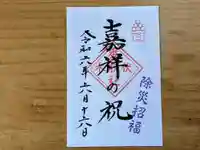 除災招福
嘉祥の祝
令和六年六月十六日